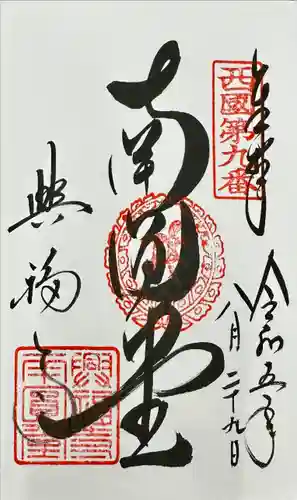 奉拝
西國第九番
令和五年
八月二十九日
南圓堂
興福寺
興福寺
南圓堂